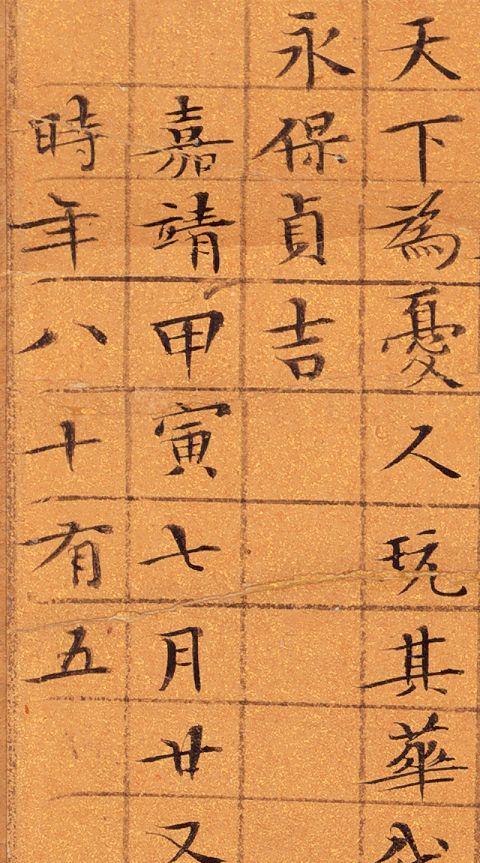 天下為憂人玩其華
永保貞吉
嘉靖甲寅七月廿又
時年八十有五